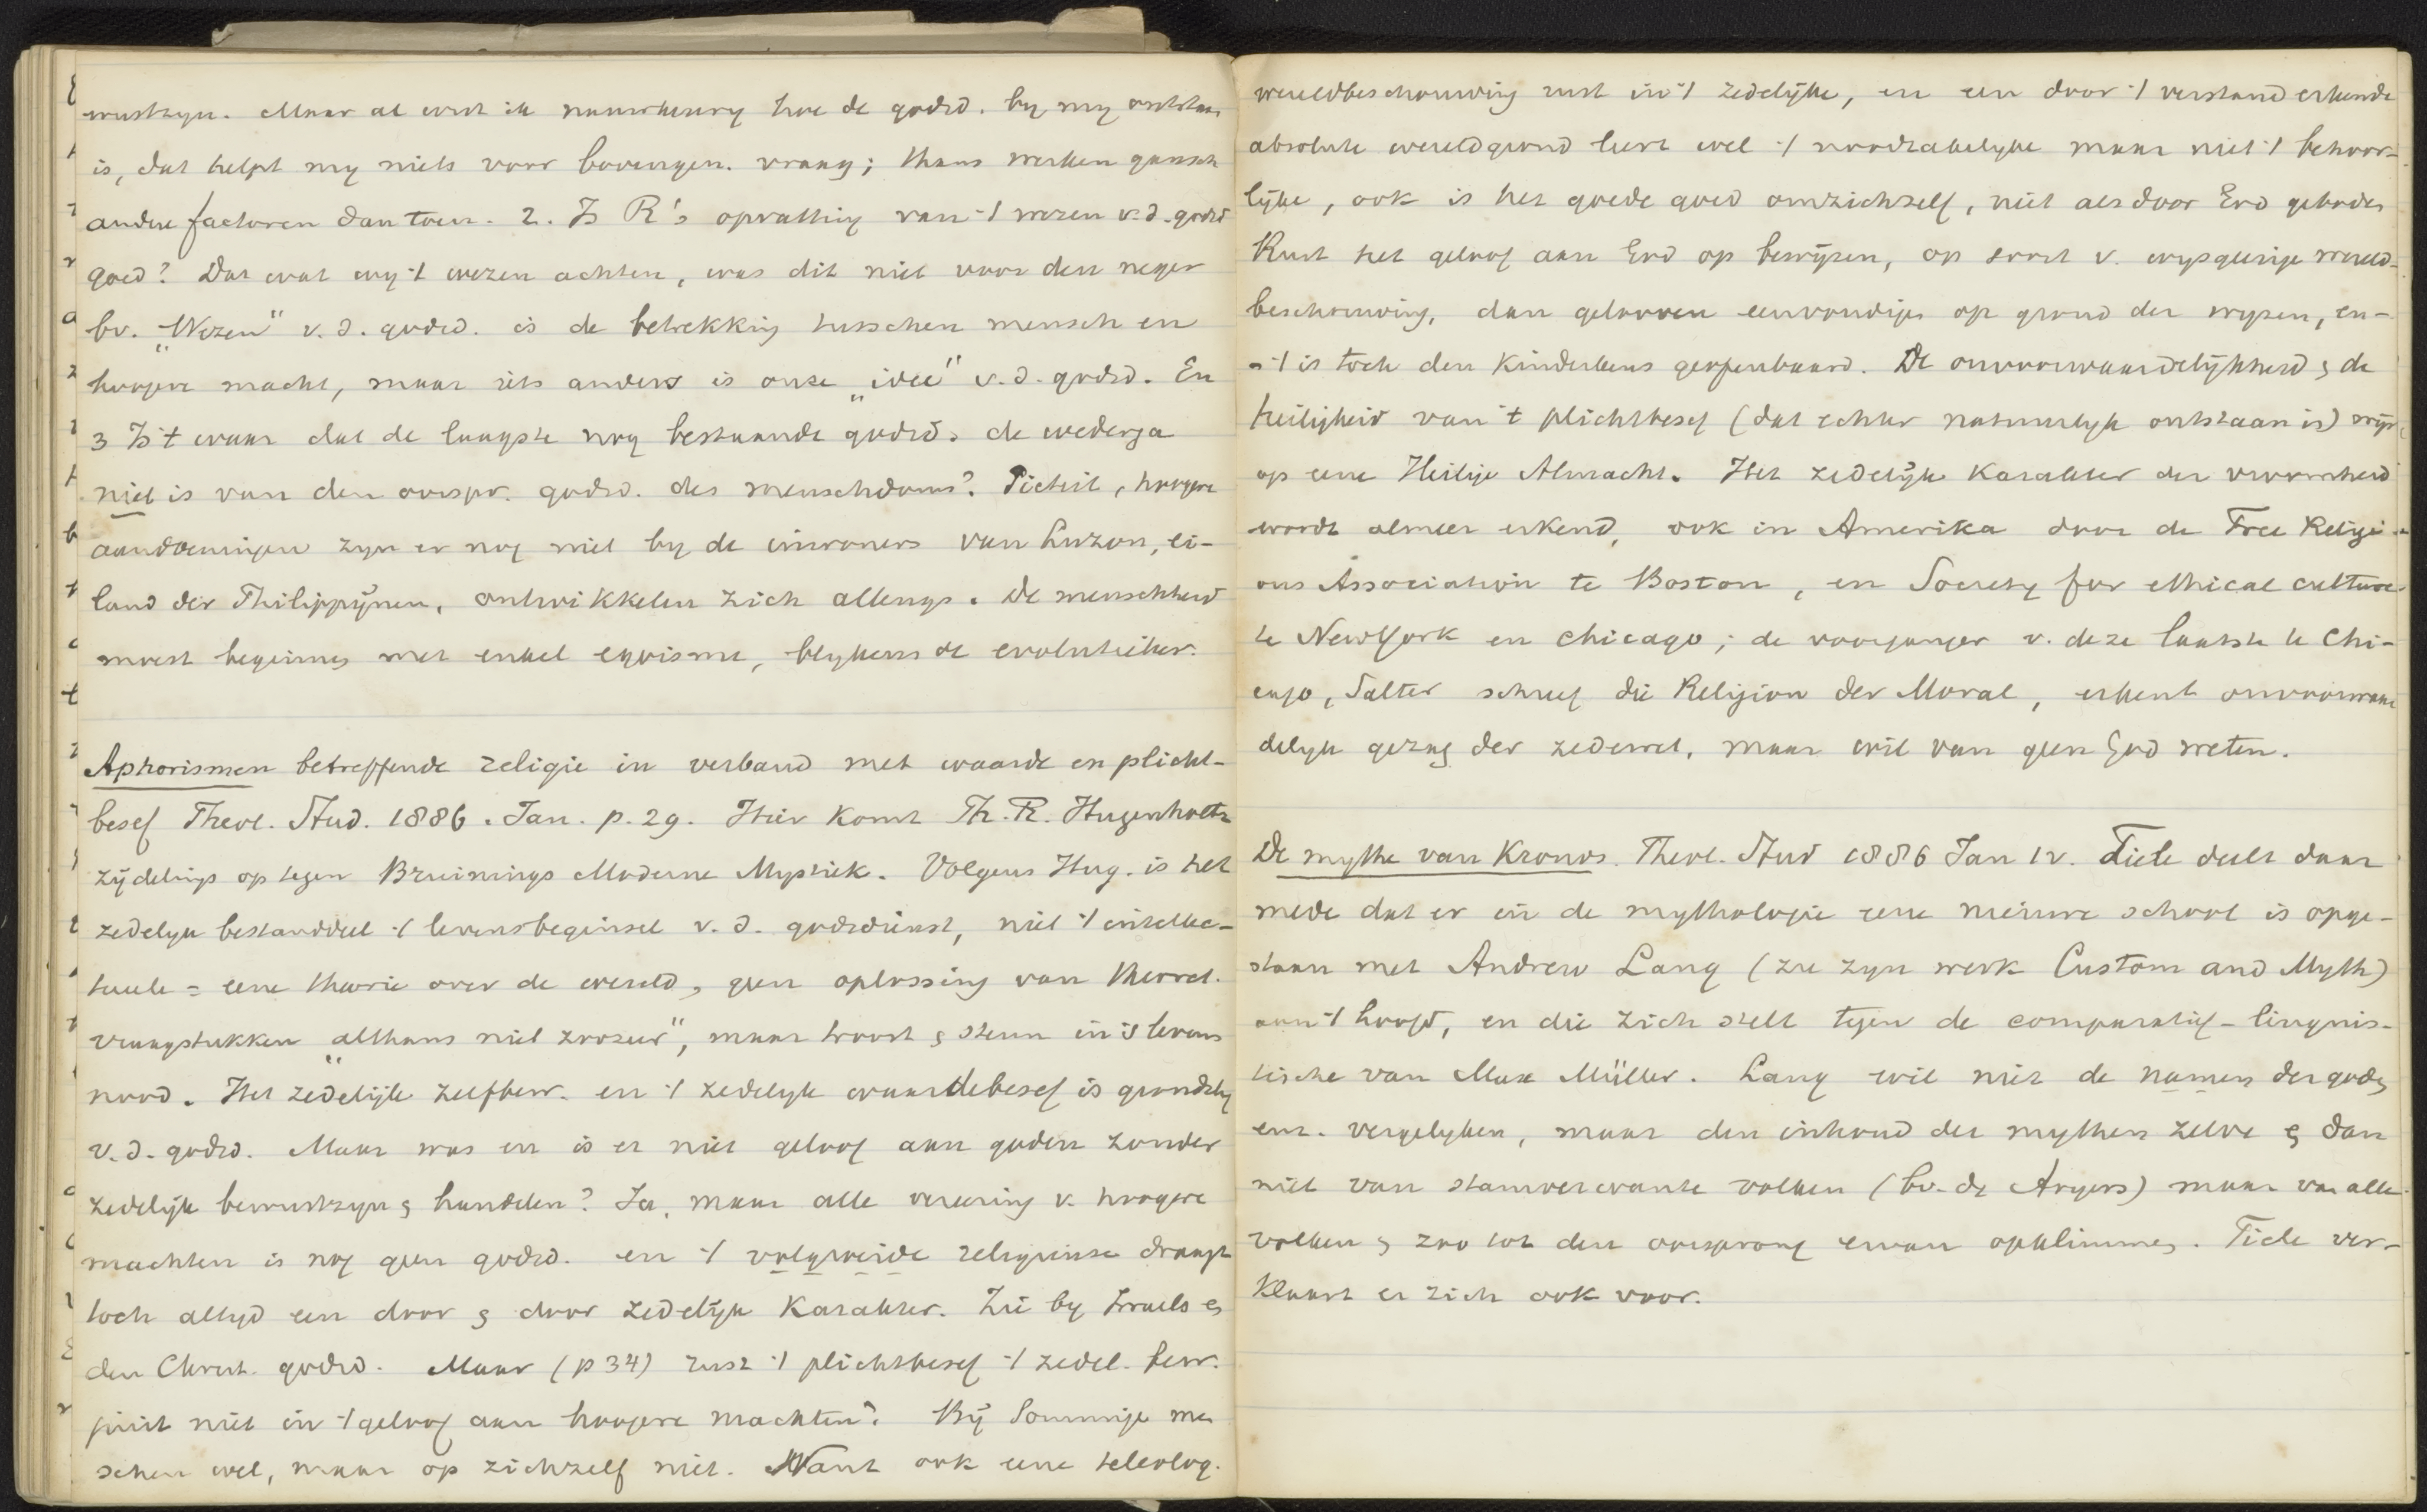 wustzyn. Maar al wist ik nauwkeurig hoe de godsd. by my ontstaan
is, dat helpt my niets voor bovengen. vraag; thans werken gansch
andere factoren dan toen. 2. Is R's opvatting van 't wezen v.d. godsd
goed? Dat wat wy 't wezen achten, was dit niet voor den neger
bv. "Wezen" v.d. godsd. is de betrekking tusschen mensch en
hoogere macht, maar iets anders is onze "idee" v.d. godsd. En
3 Is 't waar dat de laagste nog bestaande godsd. de wederga
niet is van den oorspr. godsd. des menschdoms? Piëteit, hoogere
aandoeningen zyn er nog niet by de inwoners van Luzon, ei-
land der Philippijnen, ontwikkelen zich allengs. De menschheid
moest beginnen met enkel egoisme, blykens de evolutieleer.
Aphorismen betreffende religie in verband met waarde en plicht-
besef Theol. Stud. 1886. Jan. p. 29. Hier komt Ph. R. Hugenholtz
zijdelings op tegen Bruinings Moderne Mystiek. Volgens Hug. is het
zedelyk bestanddeel 't levensbeginsel v.d. godsdienst, niet 't intellec-
tueele = eene theorie over de wereld, geen oplossing van theoret.
vraagstukken "althans niet zoozeer", maar troost & steun in 's levens
nood. Het zedelijk zelfbew. en 't zedelyk waardebesef is grondslag
v.d. godsd. Maar was en is er niet geloof aan goden zonder
zedelijk bewustzyn & handelen? Ja, maar alle vereering v. hoogere
machten is nog geen godsd. en 't volgroeide religieuse draagt
toch altyd een door & door zedelijk karakter. Zie by Israels &
den Christ. godsd. Maar (p 34) rust 't plichtbesef 't zedel. bew.
juist niet in 't geloof aan hoogere machten? Bij sommige men
schen wel, maar op zichzelf niet. Want ook eene teleolog.
wereldbeschouwing rust in 't zedelijke, en een door 't verstand erkende
absolute wereldgrond leert wel 't noodzakelyke maar niet 't behoor-
lijke, ook is het goede goed om zichzelf, niet als door God geboden
Rust het geloof aan God op bewijzen, op soort v. wysgeerige wereld-
beschouwing, dan gelooven eenvoudigen op grond der wyzen, en-
- 't is toch den kinderkens geopenbaard. De onvoorwaardelijkheid & de
heiligheid van 't plichtbesef (dat echter natuurlyk ontstaan is) wijst
op eene Heilige Almacht. Het zedelijk karakter der vroomheid
wordt almeer erkend, ook in Amerika door de Free Religi-
ous Association te Boston, en Society for ethical culture
te NewYork en Chicago; de voorganger v. deze laatste te Chi-
cago, Salter schreef die Religion der Moral, erkent onvoorwaar
delyk gezag der zedewet, maar wil van geen God weten.
De mythe van Kronos. Theol. Stud 1886 Jan 12. Tiele deelt daar
mede dat er in de mythologie eene nieuwe school is opge-
staan met Andrew Lang (zie zyn werk Custom and Myth)
aan 't hoofd, en die zich stelt tegen de comparatief-linguis-
tische van Max Müller. Lang wil niet de namen der goden
enz. vergelyken, maar den inhoud der mythen zelve & dan
niet van stamverwante volken (bv. de Aryers) maar van alle
volken & zoo tot den oorsprong ervan opklimmen. Tiele ver-
klaart er zich ook voor.